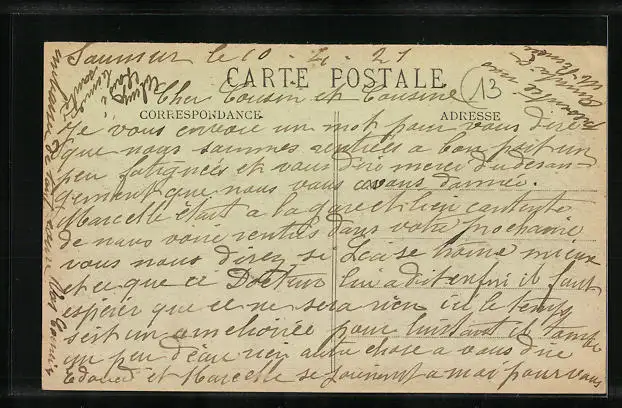 Saumur le 10 . 4 . 21
CARTE POSTALE
13
Cher Cousin et Cousine
CORRESPONDANCE
ADRESSE
Je vous envoie un mot pour vous dire
que nous sommes rentrées a bon port un
peu fatignées et vous dire merci du deran-
gement que nous vous avons donnée.
Marcelle était a la gare et bien contente
de nous voire rentrés dans votre prochaine
vous nous direz se Louise trouve mieux
et ce que ci Docteur lui a dit enfin il faut
espérer que ce ne sera rien ici le temps
seit un ameliorée pour l'instant il tombe
un peu d'eau rien autre chose a vous dire
Edouard et Marcelle se joignent a moi pour vous